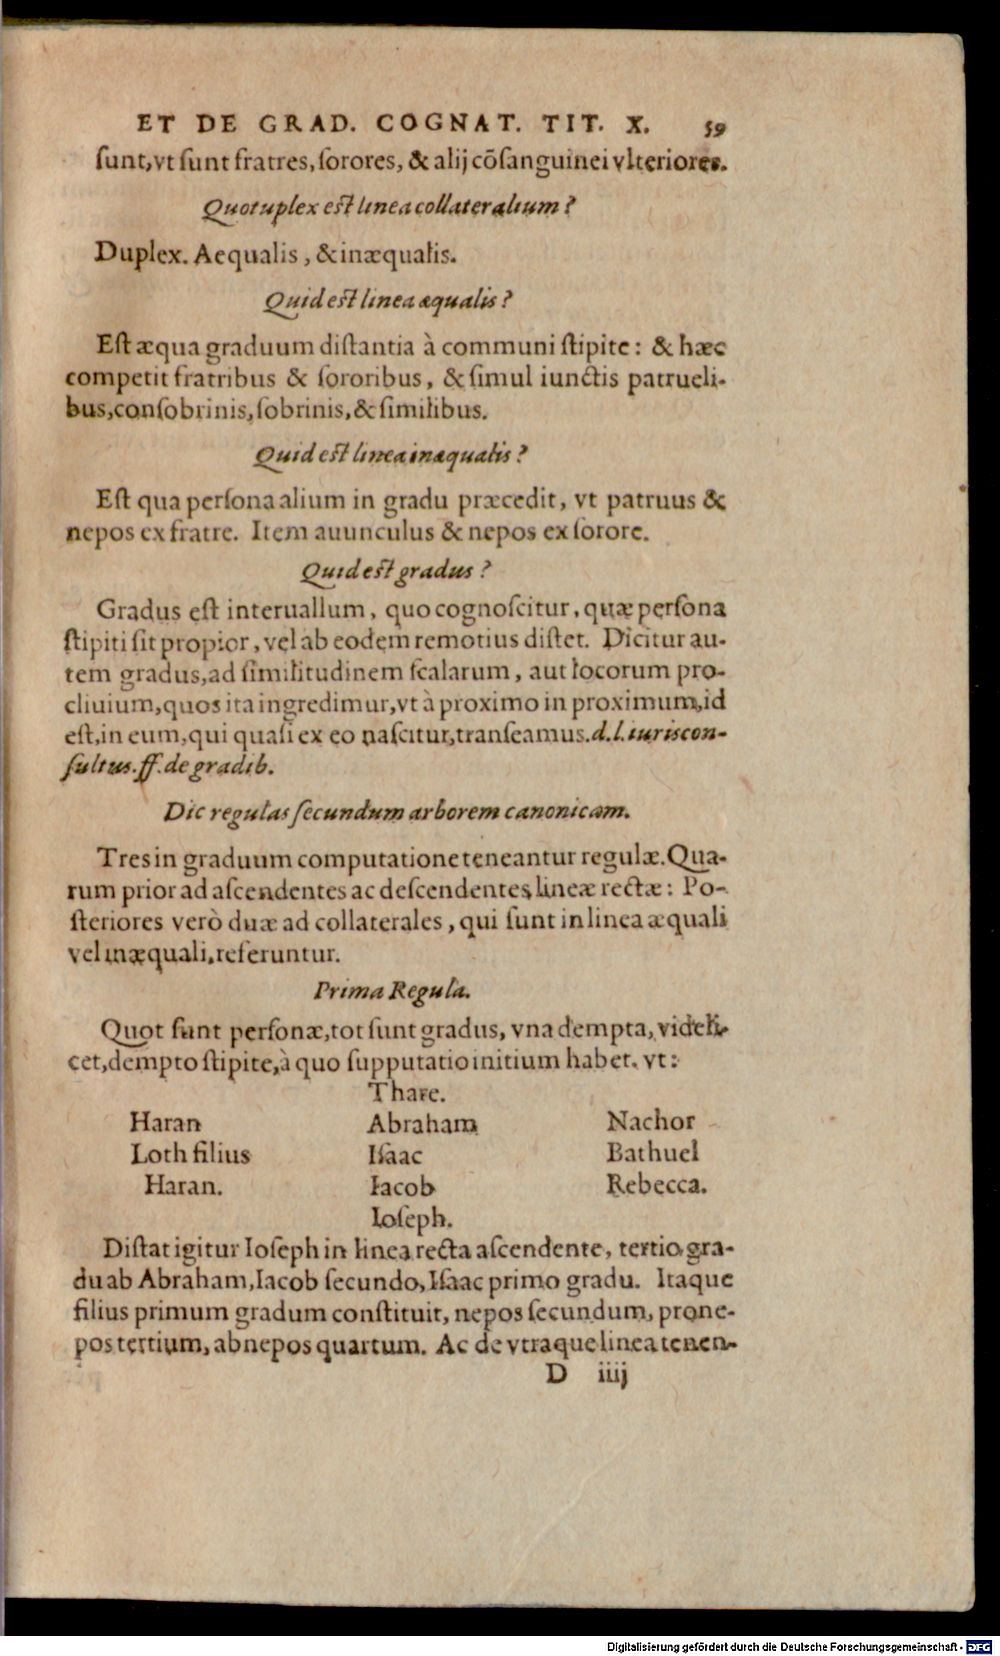 ET DE GRAD. COGNAT. TIT. X. 59
sunt, vt sunt fratres, sorores, & alij cõsanguinei vlteriores.
Quotuplex est linea collateralium?
Duplex. Aequalis, & inæqualis.
Quid est linea æqualis?
Est æqua graduum distantia à communi stipite: & hæc
competit fratribus & sororibus, & simul iunctis patrueli-
bus, consobrinis, sobrinis, & similibus.
Quid est linea inæqualis?
Est qua persona alium in gradu præcedit, vt patruus &
nepos ex fratre. Item auunculus & nepos ex sorore.
Quid est gradus?
Gradus est interuallum, quo cognoscitur, quæ persona
stipiti sit propior, vel ab eodem remotius distet. Dicitur au-
tem gradus, ad similitudinem scalarum, aut locorum pro-
cliuium, quos ita ingredimur, vt à proximo in proximum, id
est, in eum, qui quasi ex eo nascitur, transeamus. d. l. iuriscon-
sultus. ff. de gradib.
Dic regulas secundum arborem canonicam.
Tres in graduum computatione teneantur regulæ. Qua-
rum prior ad ascendentes ac descendentes lineæ rectæ: Po-
steriores verò duæ ad collaterales, qui sunt in linea æquali
vel inæquali, referuntur.
Prima Regula.
Quot sunt personæ, tot sunt gradus, vna dempta, videli-
cet, dempto stipite, à quo supputatio initium habet. vt:
Thare.
Haran Abraham Nachor
Loth filius Isaac Bathuel
Haran. Iacob Rebecca.
Ioseph.
Distat igitur Ioseph in linea recta ascendente, tertio gra-
du ab Abraham, Iacob secundo, Isaac primo gradu. Itaque
filius primum gradum constituit, nepos secundum, prone-
pos tertium, abnepos quartum. Ac de vtraque linea tenen-
D iiij
Digitalisierung gefördert durch die Deutsche Forschungsgemeinschaft - DFG